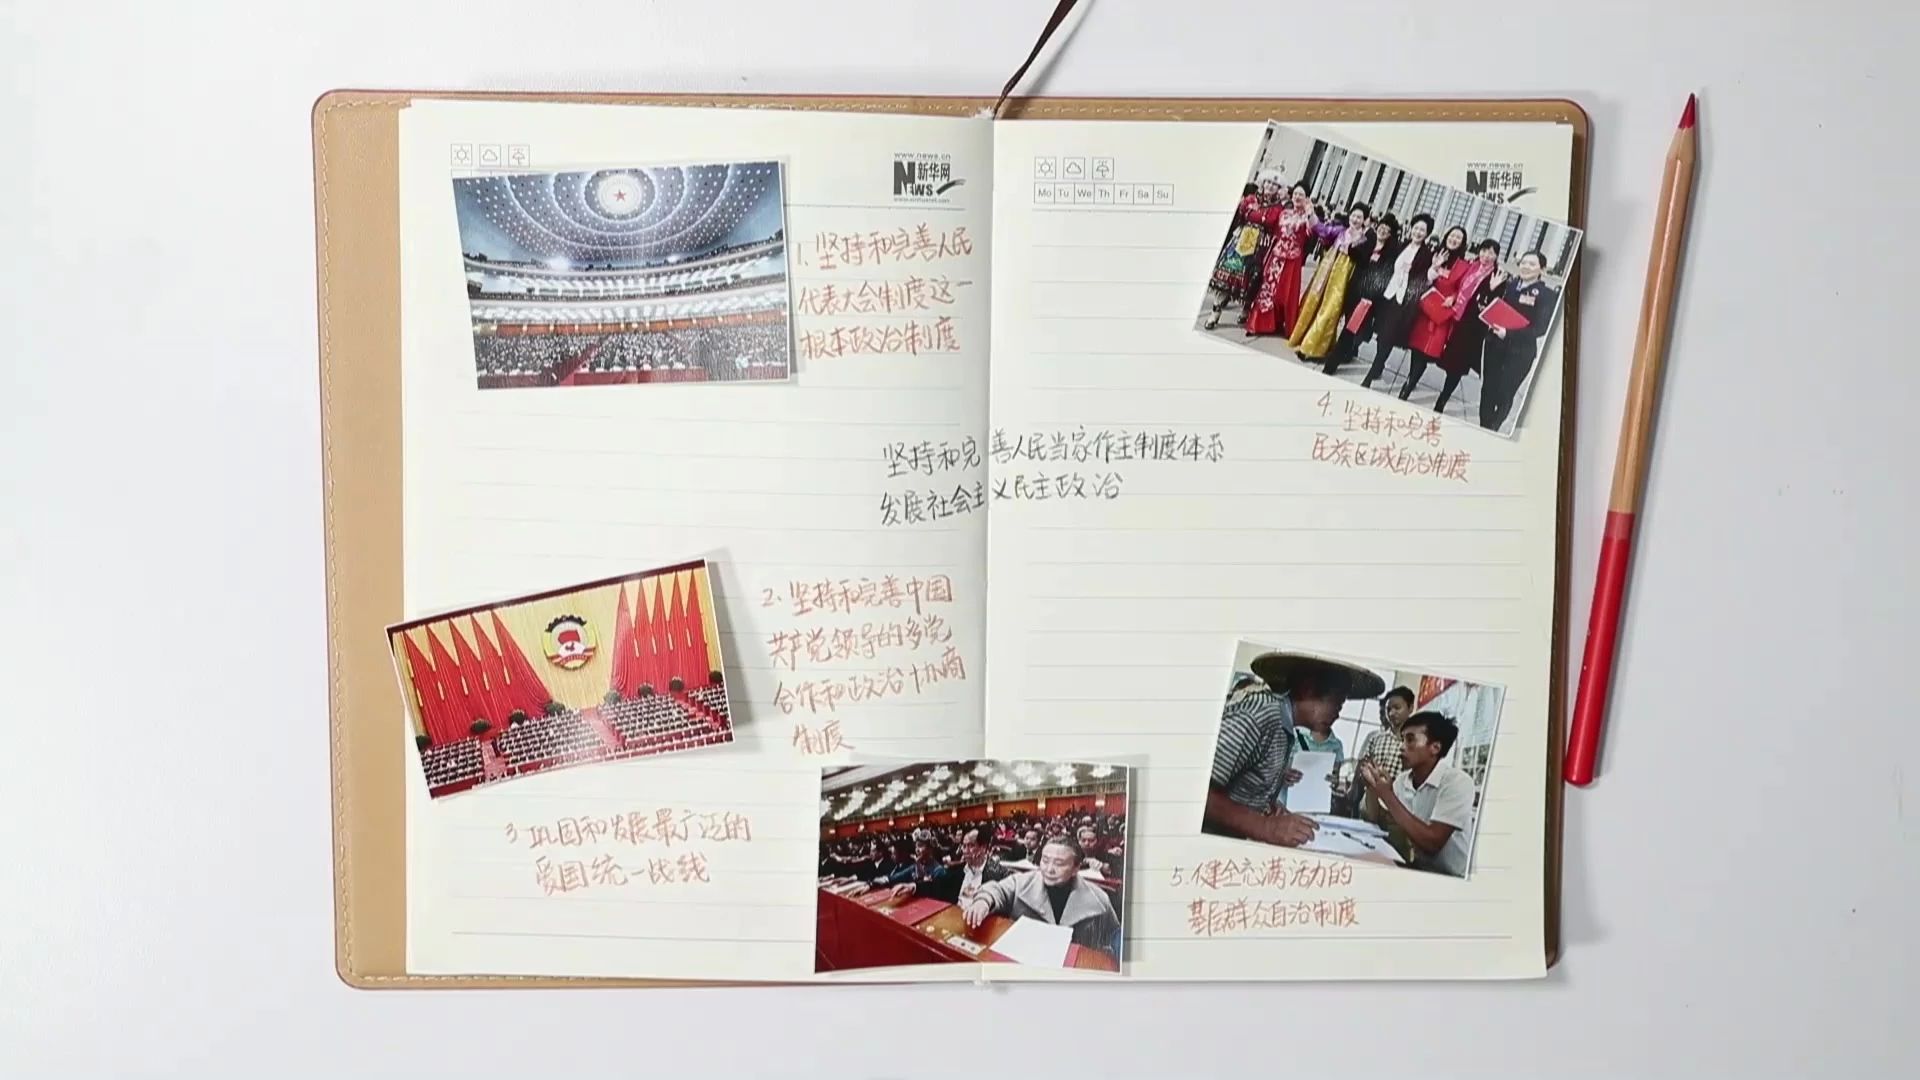 www.news.cn
新华网
NEWS
www.xinhuanet.com
1.坚持和完善人民
代表大会制度这一
根本政治制度
坚持和完善人民当家作主制度体系
发展社会主义民主政治
2、坚持和完善中国
共产党领导的多党
合作和政治协商
制度
3 巩固和发展最广泛的
爱国统一战线
Mo Tu We Th Fr Sa Su
www.news.cn
新华网
NEWS
4. 坚持和完善
民族区域自治制度
5.健全充满活力的
基层群众自治制度